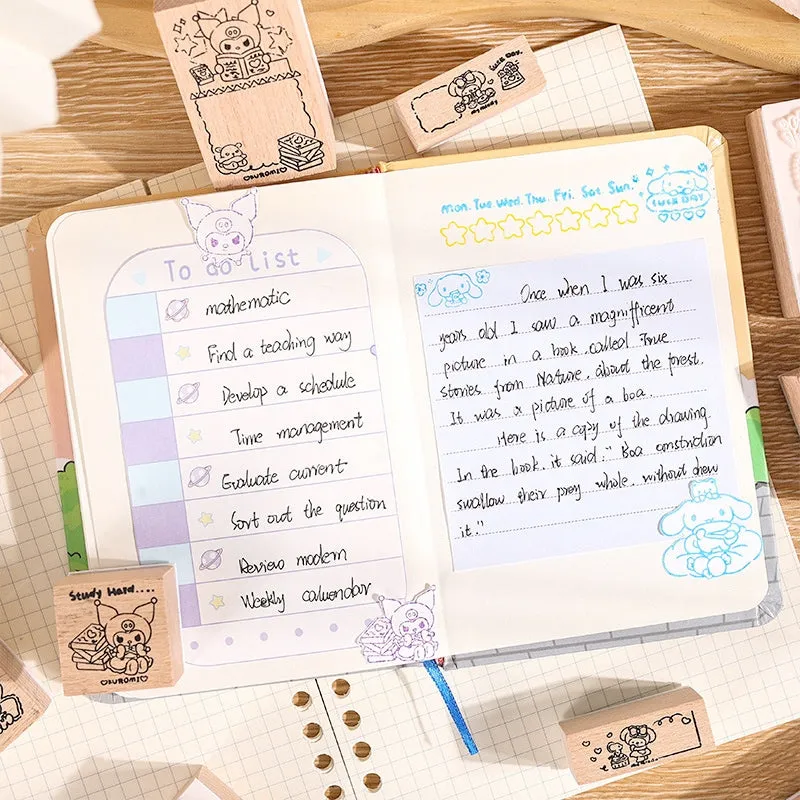 KUROMI
LUCK DAY.
my melody
To do list
mathematic
Find a teaching way
Develop a schedule
Time management
Evaluate current
Sort out the question
Review modern
Weekly caluendar
Mon. Tue. Wed. Thu. Fri. Sat. Sun.
LUCK DAY
Once when I was six
years old I saw a magnifficent
picture in a book, called True
stories from Nature, about the forest.
It was a picture of a boa.
Here is a copy of the drawing.
In the book, it said." Boa constriction
swallow their prey whole, without chew
it."
Study Hard....
KUROMI